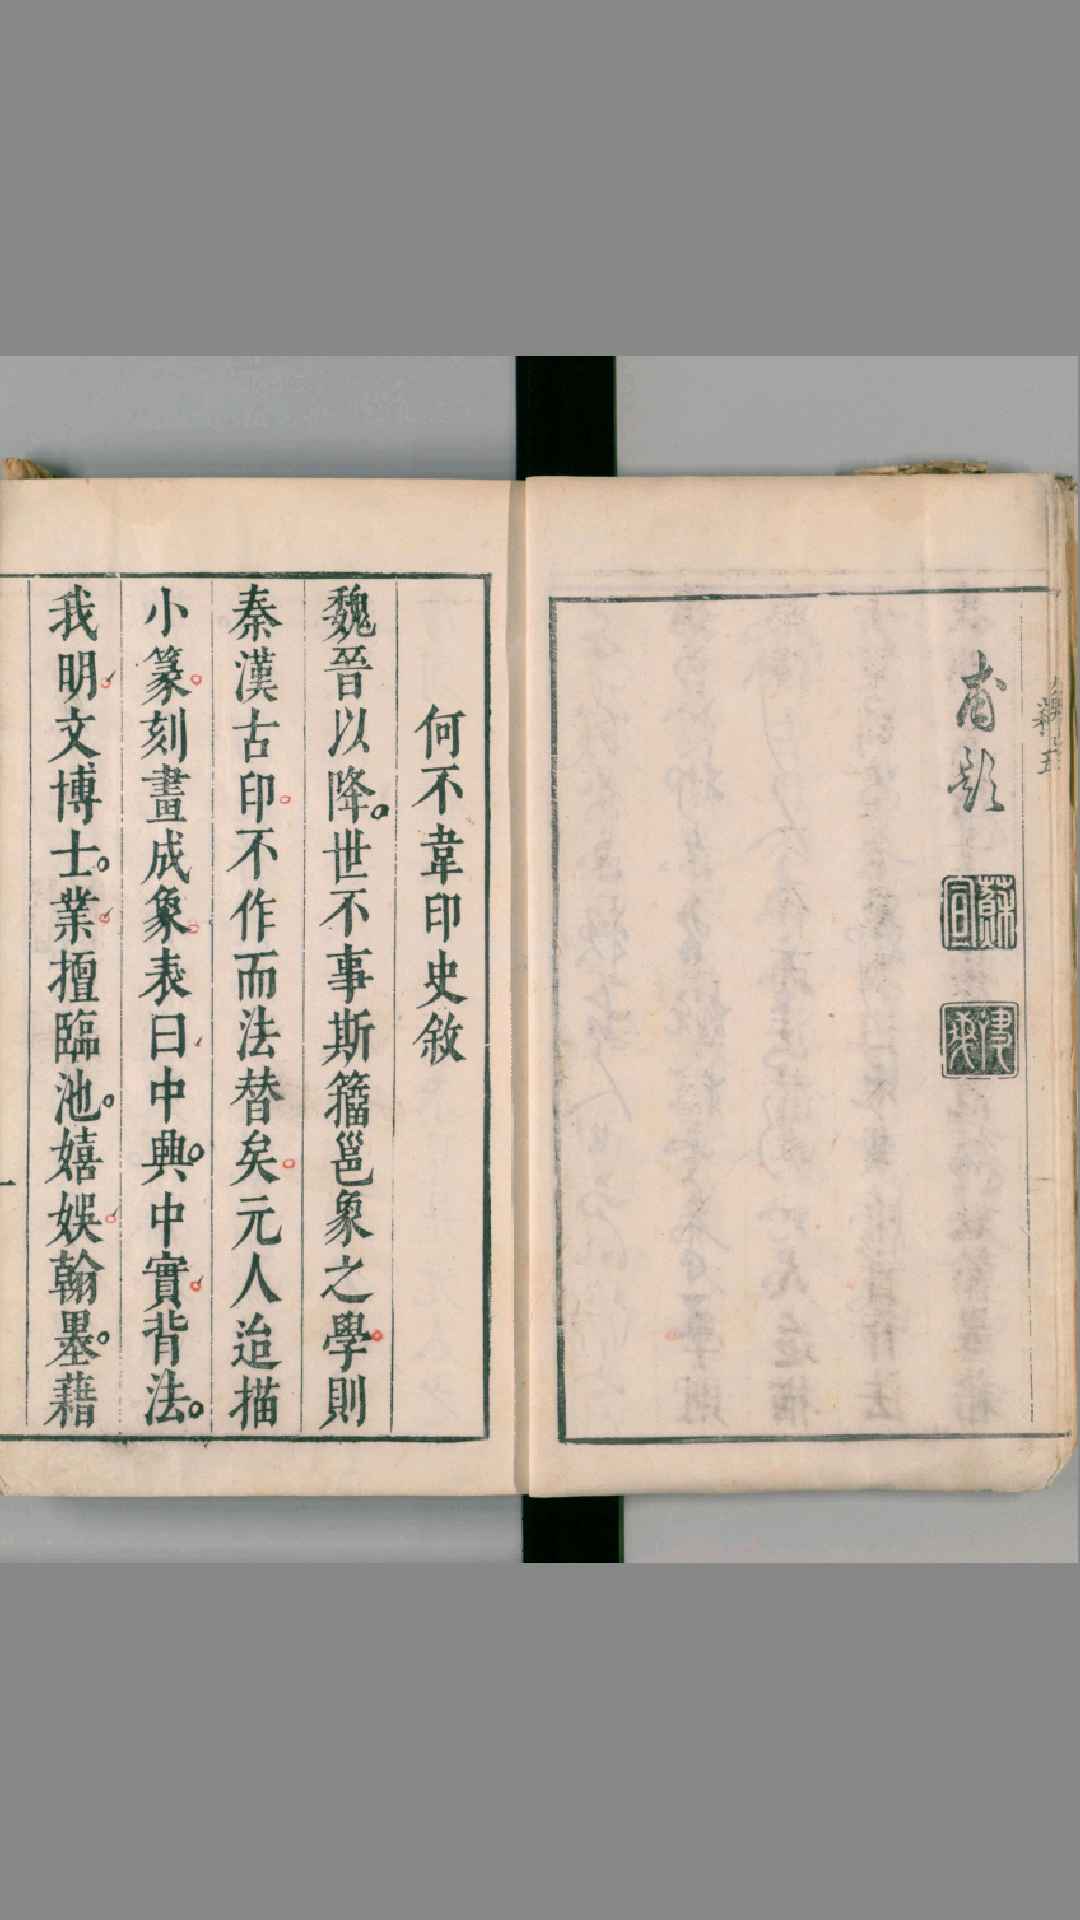 甫題
蘇宣
何不韋印史敘
魏晉以降。世不事斯籒邕象之學則
秦漢古印不作而法替矣元人迨描
小篆刻畫成象表曰中典。中實背法。
我明文博士。業擅臨池。嬉娛翰墨。藉